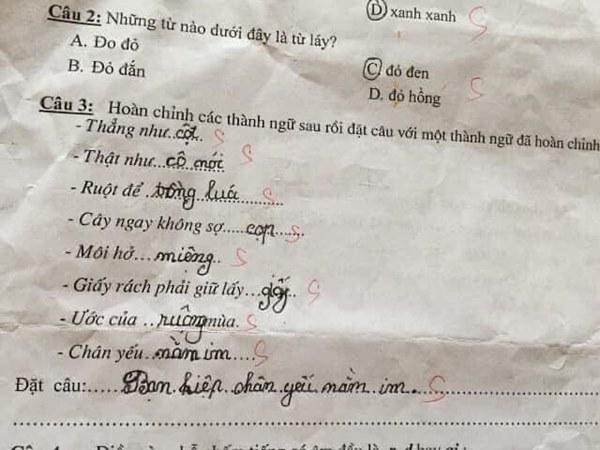 D xanh xanh S
Câu 2: Những từ nào dưới đây là từ láy?
A. Đo đỏ
C. đỏ đen S
B. Đỏ đắn
D. đỏ hồng
Câu 3: Hoàn chỉnh các thành ngữ sau rồi đặt câu với một thành ngữ đã hoàn chỉnh
- Thẳng như..cột.. S
- Thật như...cô mới S
- Ruột để ..trồng luá......... S
- Cây ngay không sợ.....cọp..... S
- Môi hở...miệng.. S
- Giấy rách phải giữ lấy...giấy.. S
- Ước của ..ruộng mùa. S
- Chân yếu..mằm im.... S
Đặt câu:......Bạn hiệp chân yếu mằm im. S